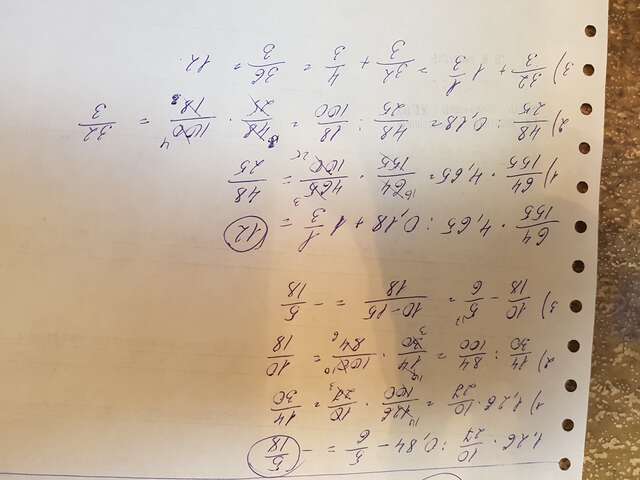 1,26 · 10/27 : 0,84 − 5/6 = − 5/18
1) 1,26 · 10/27 = 126/100 · 10/27 = 14/30
2) 14/30 : 84/100 = 14/30 · 100/84 = 10/18
3) 10/18 − 5/6 = (10−15)/18 = − 5/18
64/155 · 4,65 : 0,18 + 1 1/3 = 12
1) 64/155 · 4,65 = 64/155 · 465/100 = 48/25
2) 48/25 : 0,18 = 48/25 : 18/100 = 48/25 · 100/18 = 32/3
3) 32/3 + 1 1/3 = 32/3 + 4/3 = 36/3 = 12.